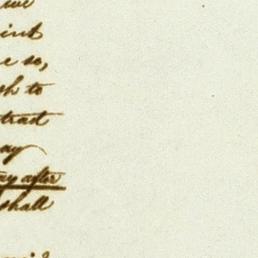 we
int
e so,
sh to
trast
ay
ay after
shall